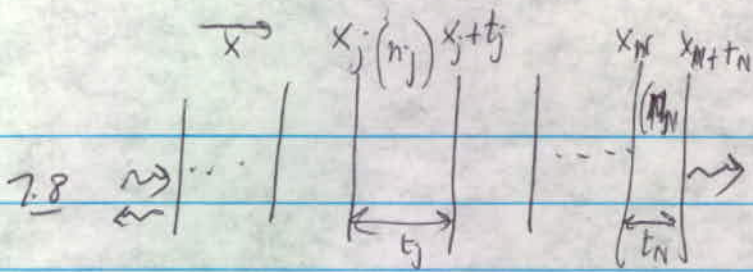 x
x_j (n_j) x_j+t_j x_N x_N+t_N
(n_N
7.8 ... ----
t_j t_N